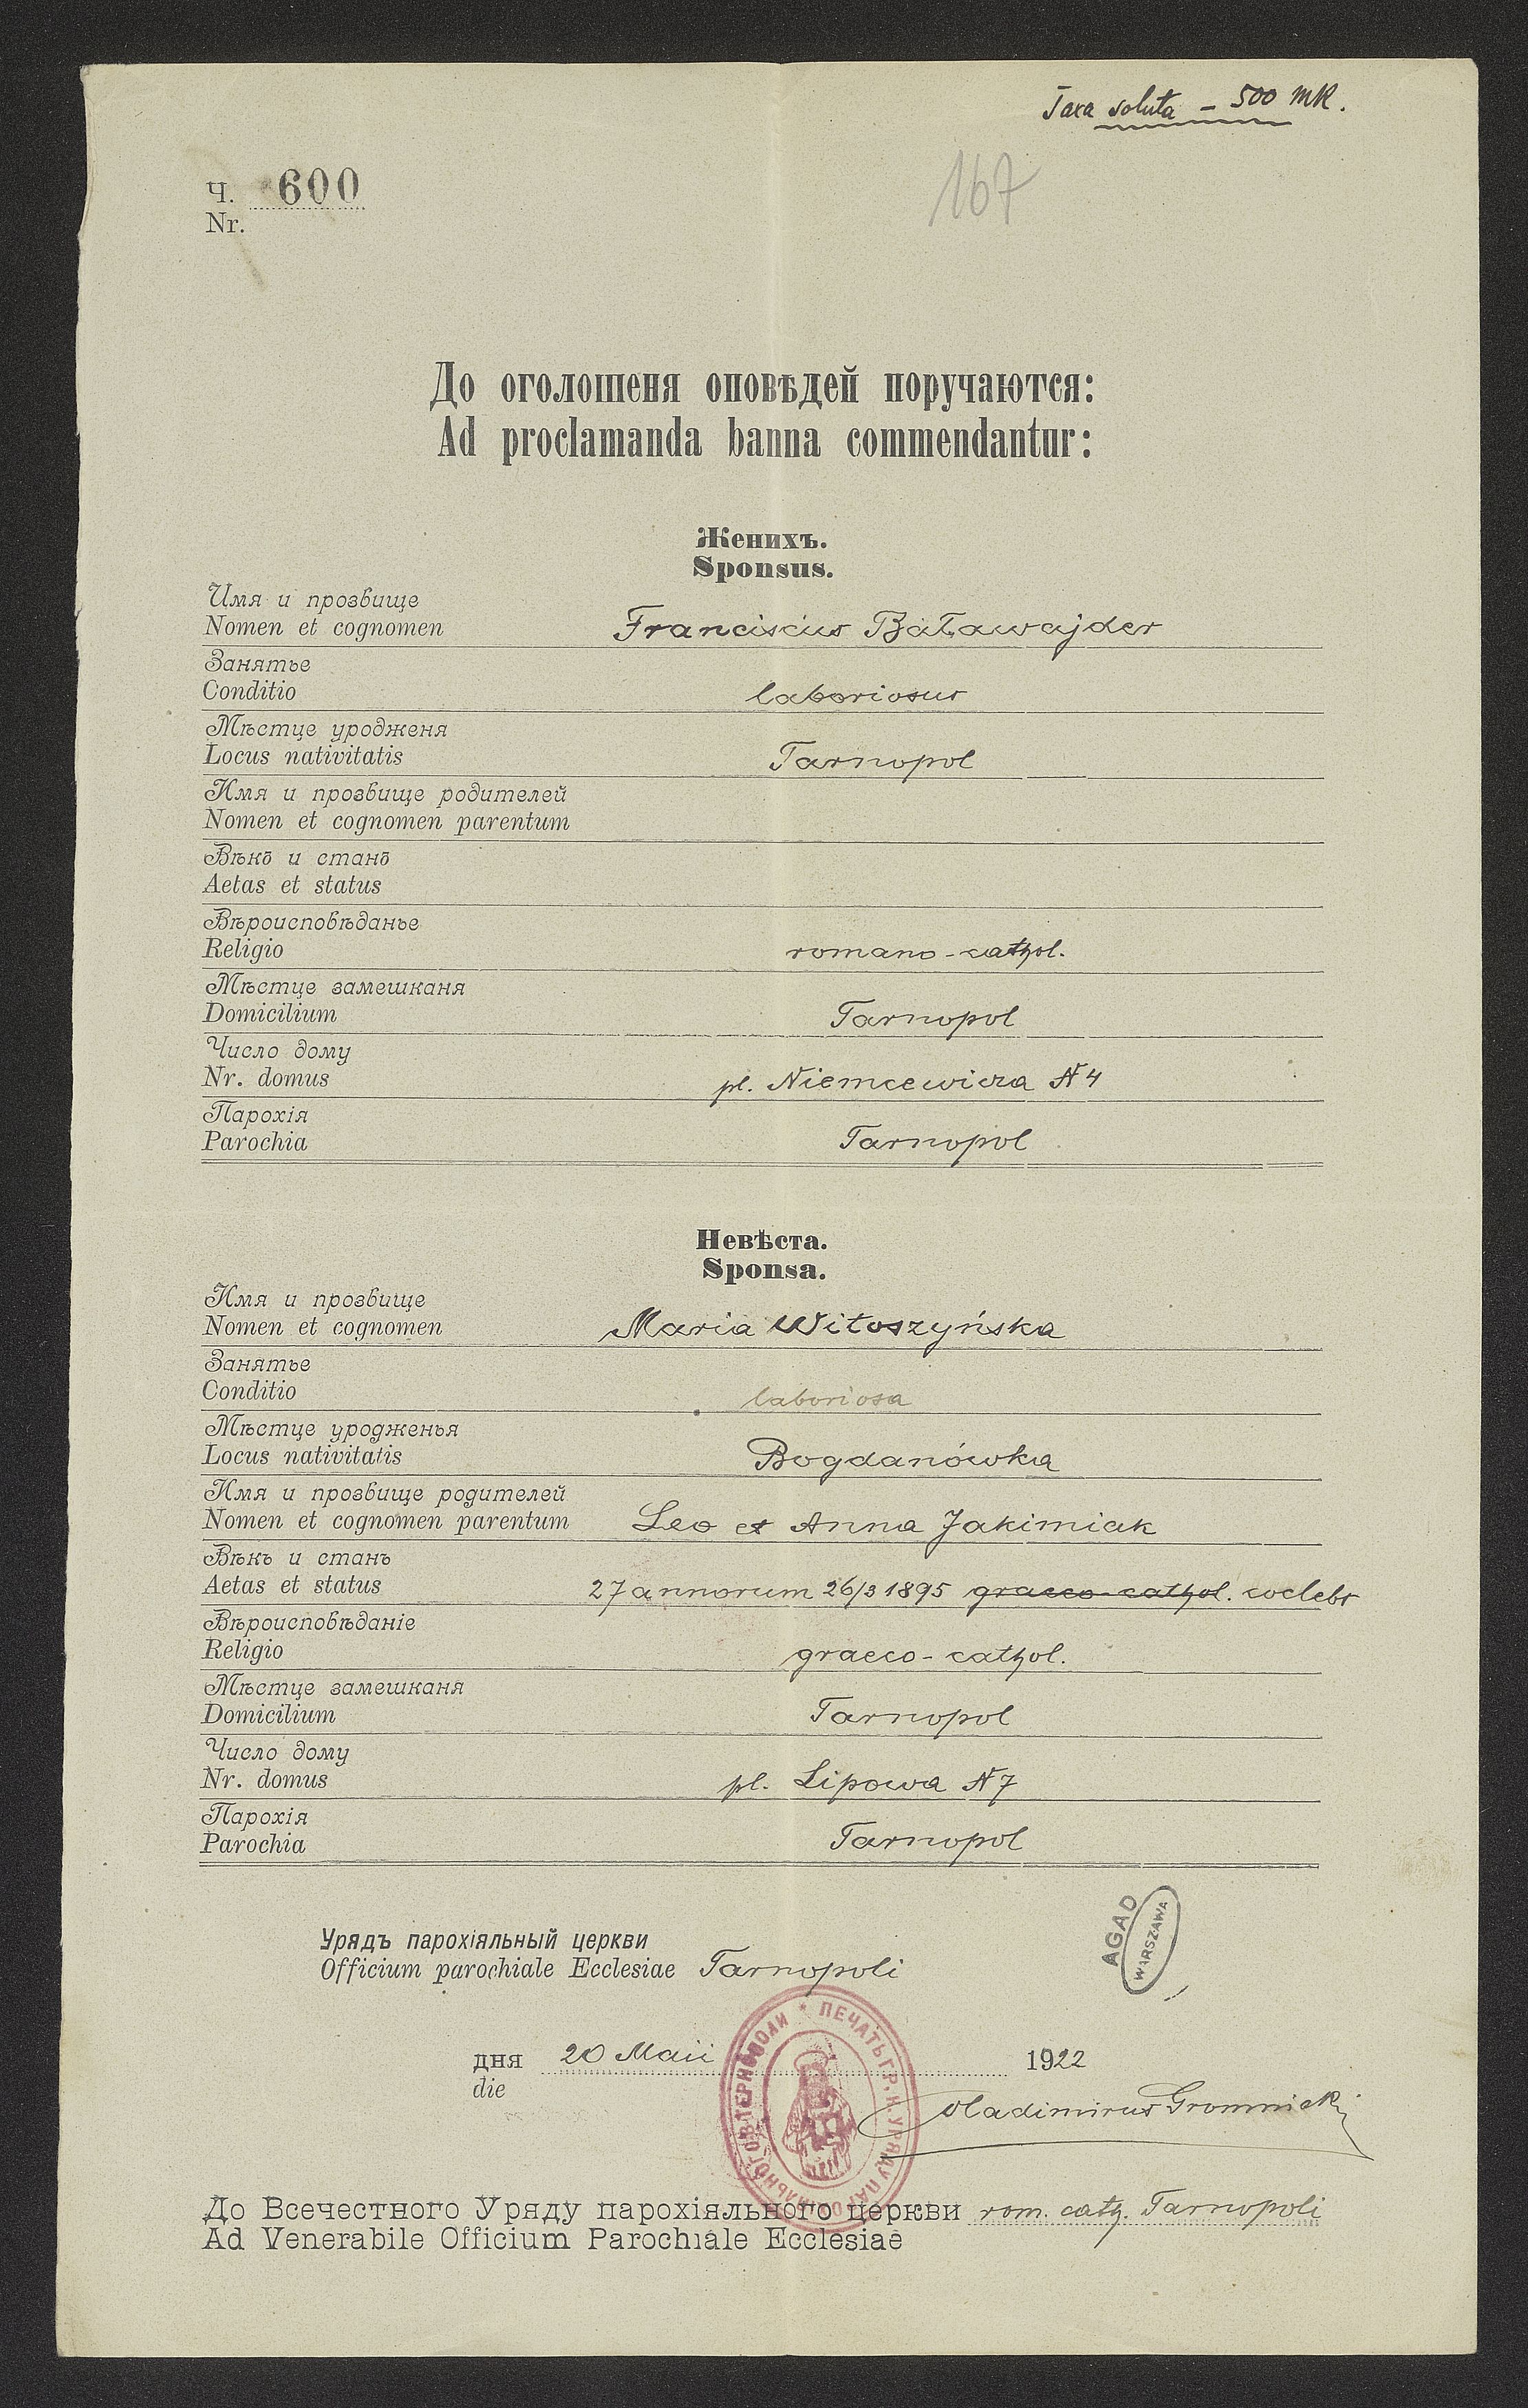 Taxa soluta - 500 mk.
Ч. 600
Nr.
167
До оголошеня оповѣдей поручаются:
Ad proclamanda banna commendantur:
Женихъ.
Sponsus.
Имя и прозвище
Nomen et cognomen Franciscus Baławajder
Занятье
Conditio laboriosus
Мѣстце уродженя
Locus nativitatis Tarnopol
Имя и прозвище родителей
Nomen et cognomen parentum
Вѣкъ и станъ
Aetas et status
Вѣроисповѣданье
Religio romano-cathol.
Мѣстце замешканя
Domicilium Tarnopol
Число дому
Nr. domus pl. Niemcewicza N 4
Парохія
Parochia Tarnopol
Невѣста.
Sponsa.
Имя и прозвище
Nomen et cognomen Maria Witoszyńska
Занятье
Conditio laboriosa
Мѣстце уродженья
Locus nativitatis Bogdanówka
Имя и прозвище родителей
Nomen et cognomen parentum Leo et Anna Jakimiak
Вѣкъ и станъ
Aetas et status 27 annorum 26/3 1895 graeco-cathol. coelebs
Вѣроисповѣданіе
Religio graeco-cathol.
Мѣстце замешканя
Domicilium Tarnopol
Число дому
Nr. domus pl. Lipowa N 7
Парохія
Parochia Tarnopol
AGAD
WARSZAWA
Урядъ парохіяльный церкви
Officium parochiale Ecclesiae Tarnopoli
* ПЕЧАТЬ ГР. К. УРЯДУ ПАРОХІЯЛЬНОГО В ТЕРНОПОЛИ
дня 20 Maii 1922
die
Vladimirus Gromnicki
До Всечестного Уряду парохіяльного церкви rom. cath. Tarnopoli
Ad Venerabile Officium Parochiale Ecclesiae